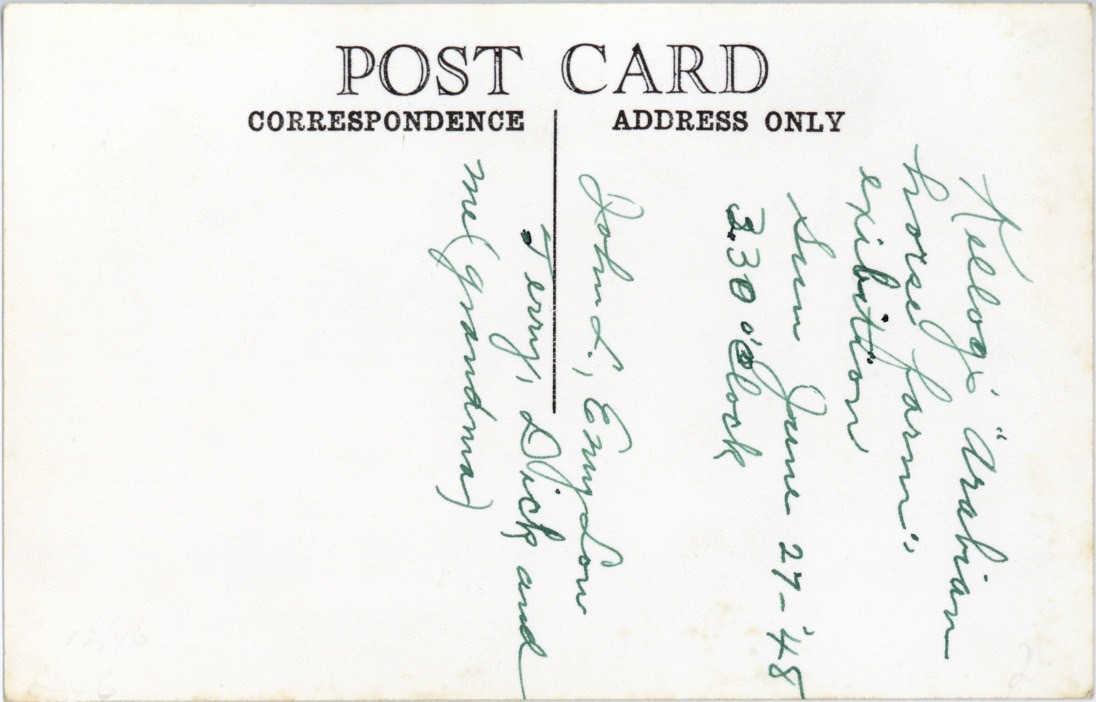 POST CARD
CORRESPONDENCE
ADDRESS ONLY
Kellogs "Arabian
horse farm",
exibition
Sun June 27-'48
3.30 o'Clock
John L., EmyLow
Terry, Dick and
me (grandma)